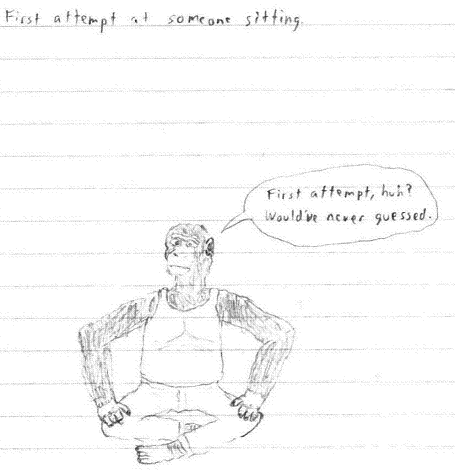 First attempt at someone sitting.
First attempt, huh?
Would've never guessed.